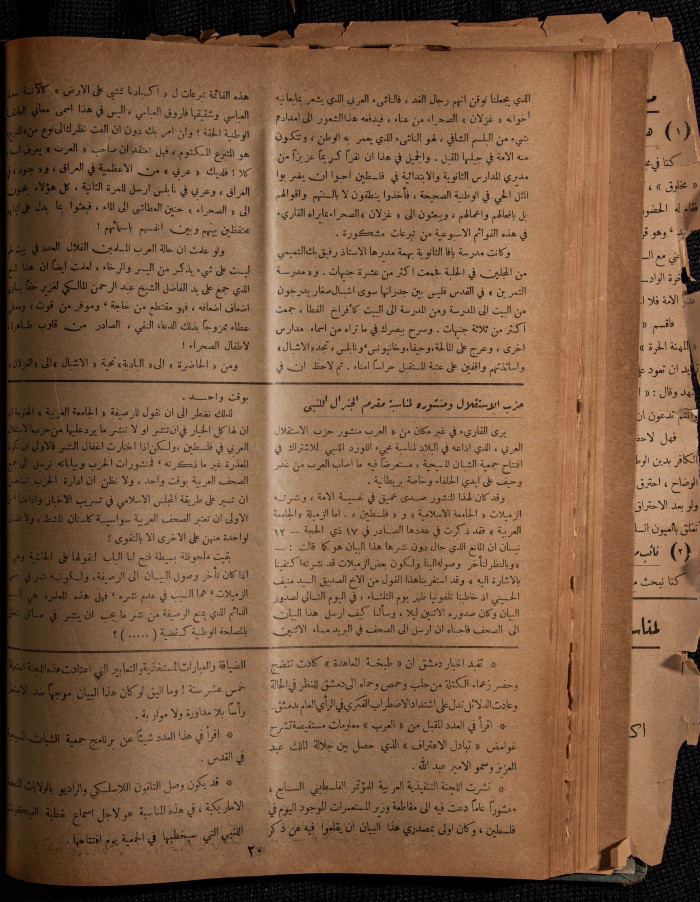 الذي يجعلنا نوقن انهم رجال الغد ، فالناشىء العربي الذي يشعر بما يعانيه
اخوانه « غزلان » الصحراء من عناء ، فيدفعه هذا الشعور الى امدادهم
بشيء من البلسم الشافي ، لهو الناشىء الذي يعمر به الوطن ، وتتكون
منه الامة في جيلها المقبل . والجميل في هذا ان نفراً كريماً عزيزاً من
مديري المدارس الثانوية والابتدائية في فلسطين احبوا ان يضربوا
المثل الحي في الوطنية الصحيحة ، فأخذوا ينطقون لا بالسنتهم واقوالهم
بل بافعالهم واعمالهم ، ويبعثون الى « غزلان » الصحراء بما يراه القارىء
في هذه القوائم الاسبوعية من تبرعات مشكورة .
وكانت مدرسة يافا الثانوية بهمة مديرها الاستاذ رفيق بك التميمي
من المجلين في الحلبة فجمعت اكثر من عشرة جنيهات . و« مدرسة
التمرين » في القدس فليس بين جدرانها سوى اشبال صغار يدرجون
من البيت الى المدرسة ومن المدرسة الى البيت كأفراخ القطا ، جمعت
اكثر من ثلاثة جنيهات . وسرح بصرك في ما تراه من اسماء مدارس
اخرى ، وعرج على المالحة وحيفا وخانيونس ونابلس ، تجد « الاشبال »
واساتذتهم واقفين على عتبة المستقبل حراساً امناء . ثم لاحظ ان في
هذه القائمة تبرعات ل « اكبادنا تمشي على الارض » كالآنسة
العباسي وشقيقها فاروق العباسي ، اليس في هذا اسمى معاني
الوطنية الحقة ؟ ولن امر بك دون ان الفت نظرك الى نوع من
هو المتبرع المكتوم ، فهل تعتقد ان صاحب « العرب » يعرف
كلا ! فلديك « عربي » من الاعظمية في العراق ، و
العراق ، وعربي في نابلس ارسل للمرة الثانية ، كل هؤلاء
الى « الصحراء » حنين العطاشى الى الماء ، فبعثوا بما يدل على
محتفظين بينهم وبين انفسهم باسمائهم !
ولو علمت ان حالة العرب المسلمين القلال العدد في بيت
ليست على شيء يذكر من اليسر والرخاء ، لعلمت ايضاً ان هذا
الذي جمع على يد الفاضل الشيخ عبد الرحمن المالكي لغزير حقاً
اضعاف اضعافه ، فهو مقتطع من حاجة وموفر من قوت ،
عطاء ممزوجاً بذلك الدعاء النقي ، الصادر من قلوب طاهرة
لاطفال الصحراء !
ومن « الحاضرة » الى « البادية » تحية « الاشبال » الى « الغزلان »
حزب الاستقلال ومنشوره لمناسبة مقدم الجنرال اللنبي
يرى القارىء في غير مكان من « العرب » منشور حزب الاستقلال
العربي ، الذي اذاعه في البلاد لمناسبة مجيء اللورد اللنبي للاشتراك في
افتتاح جمعية الشبان المسيحية ، مستعرضاً فيه ما اصاب العرب من غدر
وحيف على ايدي الحلفاء وخاصة بريطانية .
وقد كان لهذا المنشور صدى عميق في نفسية الامة ، ونشرته
الزميلات « الجامعة الاسلامية » و « فلسطين » . اما الزميلة « الجامعة
العربية » فقد ذكرت في عددها الصادر في ١٧ ذي الحجة — ١٢
نيسان ان المانع الذي حال دون نشرها هذا البيان هو كما قالت : —
« وبالنظر لتأخر وصوله الينا ولكون بعض الزميلات قد نشرته اكتفينا
بالاشارة اليه » وقد استغربنا هذا القول من الاخ الصديق السيد منيف
الحسيني اذ خاطبنا تلفونيا ظهر يوم الثلثاء ، في اليوم التالي لصدور
البيان وكان صدوره الاثنين ليلا ، وسألنا كيف ارسل هذا البيان
الى الصحف فاجبناه ان ارسل الى الصحف في البريد مساء الاثنين
بوقت واحد .
لذلك نضطر الى ان نقول للرصيفة « الجامعة العربية » المحترمة
ان لها كل الخيار في ان تنشر او لا تنشر ما يرد عليها من حزب الاستقلال
العربي في فلسطين ، ولكن اذا اختارت اغفال النشر فالاولى ان
المعذرة غير ما ذكرته ، فمنشورات الحزب وبياناته ترسل الى
الصحف العربية بوقت واحد . ولا نظن ان ادارة الحزب
ان تسير على طريقة المجلس الاسلامي في تسريب الاخبار واذاعتها
الاولى ان تعتبر الصحف العربية سواسية كاسنان المشط ، ولا
لواحدة منهن على الاخرى الا بالتقوى !
بقيت ملحوظة بسيطة فتح لنا الباب لنقولها على الحاشية وهي
اذا كان تأخر وصول البيان الى الرصيفة ، ولكونه نشر في
الزميلات ، هما السبب في عدم نشره ، فهل هذه المعذرة هي
الدائم الذي يمنع الرصيفة من نشر ما يجب ان ينشر في مسائل
بالمصلحة الوطنية كقضية ( ..... ) ؟
* تفيد اخبار دمشق ان « طبخة المعاهدة » كادت تنضج
وحضر زعماء الكتلة من حلب وحمص وحماه الى دمشق للنظر في الحالة
وعادت الدلائل تدل على اشتداد الاضطراب الفكري في الرأي العام بدمشق
* اقرأ في العدد المقبل من « العرب » معلومات مستفيضة تشرح
غوامض « تبادل الاعتراف » الذي حصل بين جلالة الملك عبد
العزيز وسمو الامير عبد الله .
* نشرت اللجنة التنفيذية العربية للمؤتمر الفلسطيني السابع ،
منشوراً عاماً دعت فيه الى مقاطعة وزير المستعمرات الموجود اليوم في
فلسطين ، وكان اولى بمصدري هذا البيان ان يقلعوا فيه عن ذكر
الضيافة والعبارات المستخذية والتعابير التي اعتادت هذه اللجنة
خمس عشر سنة ! وما اليق لو كان هذا البيان موجهاً ضد
رأساً بلا مداورة ولا مواربة .
* اقرأ في هذا العدد شيئاً عن برنامج جمعية الشبان المسيحية
في القدس .
* قد يكون وصل التلفون اللاسلكي والراديو بالولايات المتحدة
الاميركية ، في هذه المناسبة هو لاجل اسماع خطبة الفيكونت
اللنبي التي سيخطبها في الجمعية يوم افتتاحها .
٢٠
(١)
(٢)